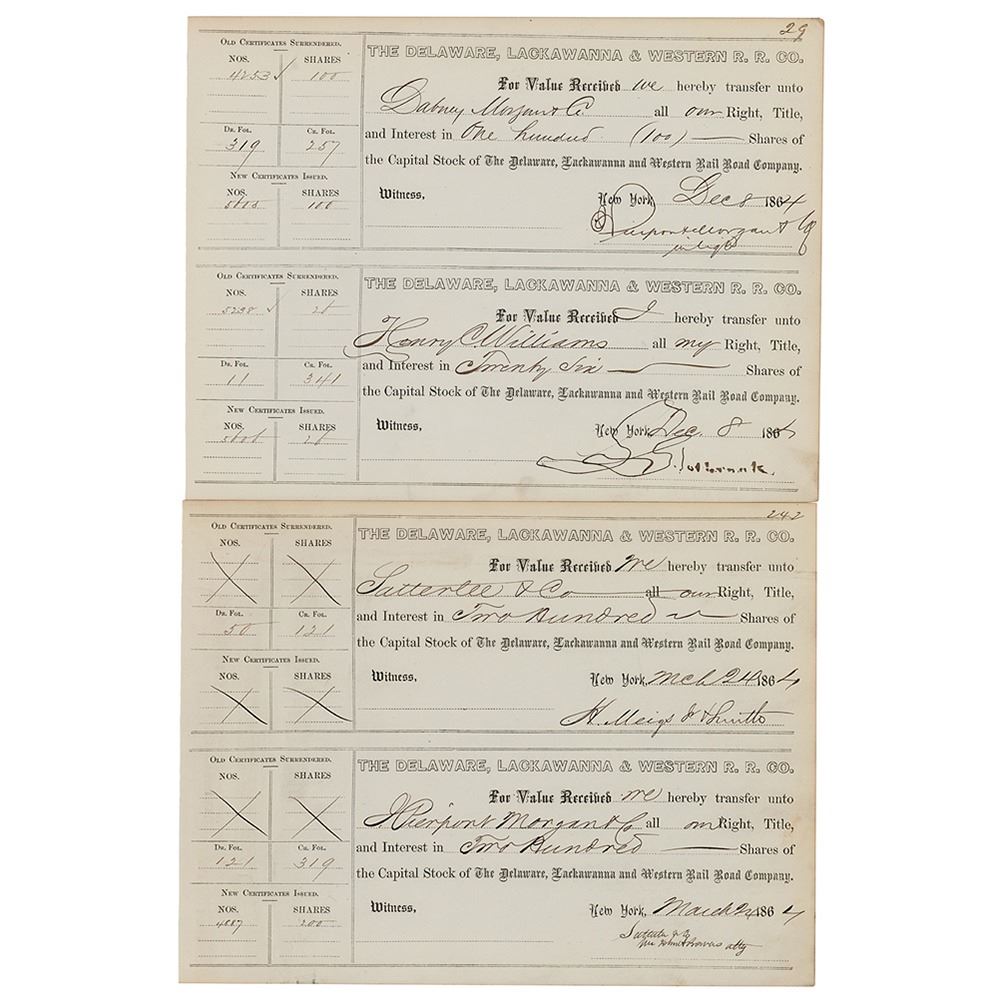 29
OLD CERTIFICATES SURRENDERED.
NOS. SHARES
4253 ✓ 100
DR. FOL. CR. FOL.
319 257
NEW CERTIFICATES ISSUED.
NOS. SHARES
100
THE DELAWARE, LACKAWANNA & WESTERN R. R. CO.
For Value Received we hereby transfer unto
Dabney Morgan & Co all our Right, Title,
and Interest in One hundred (100) — Shares of
the Capital Stock of The Delaware, Lackawanna and Western Rail Road Company.
Witness, New York, Dec 8 1864
J Pierpont Morgan & Co
OLD CERTIFICATES SURRENDERED.
NOS. SHARES
5298 ✓
DR. FOL. CR. FOL.
11 341
NEW CERTIFICATES ISSUED.
NOS. SHARES
THE DELAWARE, LACKAWANNA & WESTERN R. R. CO.
For Value Received I hereby transfer unto
Henry C Williams all my Right, Title,
and Interest in Twenty Six — Shares of
the Capital Stock of The Delaware, Lackawanna and Western Rail Road Company.
Witness, New York, Dec. 8 1864
242
OLD CERTIFICATES SURRENDERED.
NOS. SHARES
DR. FOL. CR. FOL.
50 121
NEW CERTIFICATES ISSUED.
NOS. SHARES
THE DELAWARE, LACKAWANNA & WESTERN R. R. CO.
For Value Received We hereby transfer unto
Satterlee & Co all our Right, Title,
and Interest in Two Hundred — Shares of
the Capital Stock of The Delaware, Lackawanna and Western Rail Road Company.
Witness, New York, Mch 24 1864
H. Meigs Jr & Smith
OLD CERTIFICATES SURRENDERED.
NOS. SHARES
DR. FOL. CR. FOL.
121 319
NEW CERTIFICATES ISSUED.
NOS. SHARES
4687 200
THE DELAWARE, LACKAWANNA & WESTERN R. R. CO.
For Value Received we hereby transfer unto
J Pierpont Morgan & Co all our Right, Title,
and Interest in Two Hundred — Shares of
the Capital Stock of The Delaware, Lackawanna and Western Rail Road Company.
Witness, New York, March 24 1864
Satterlee & Co
atty